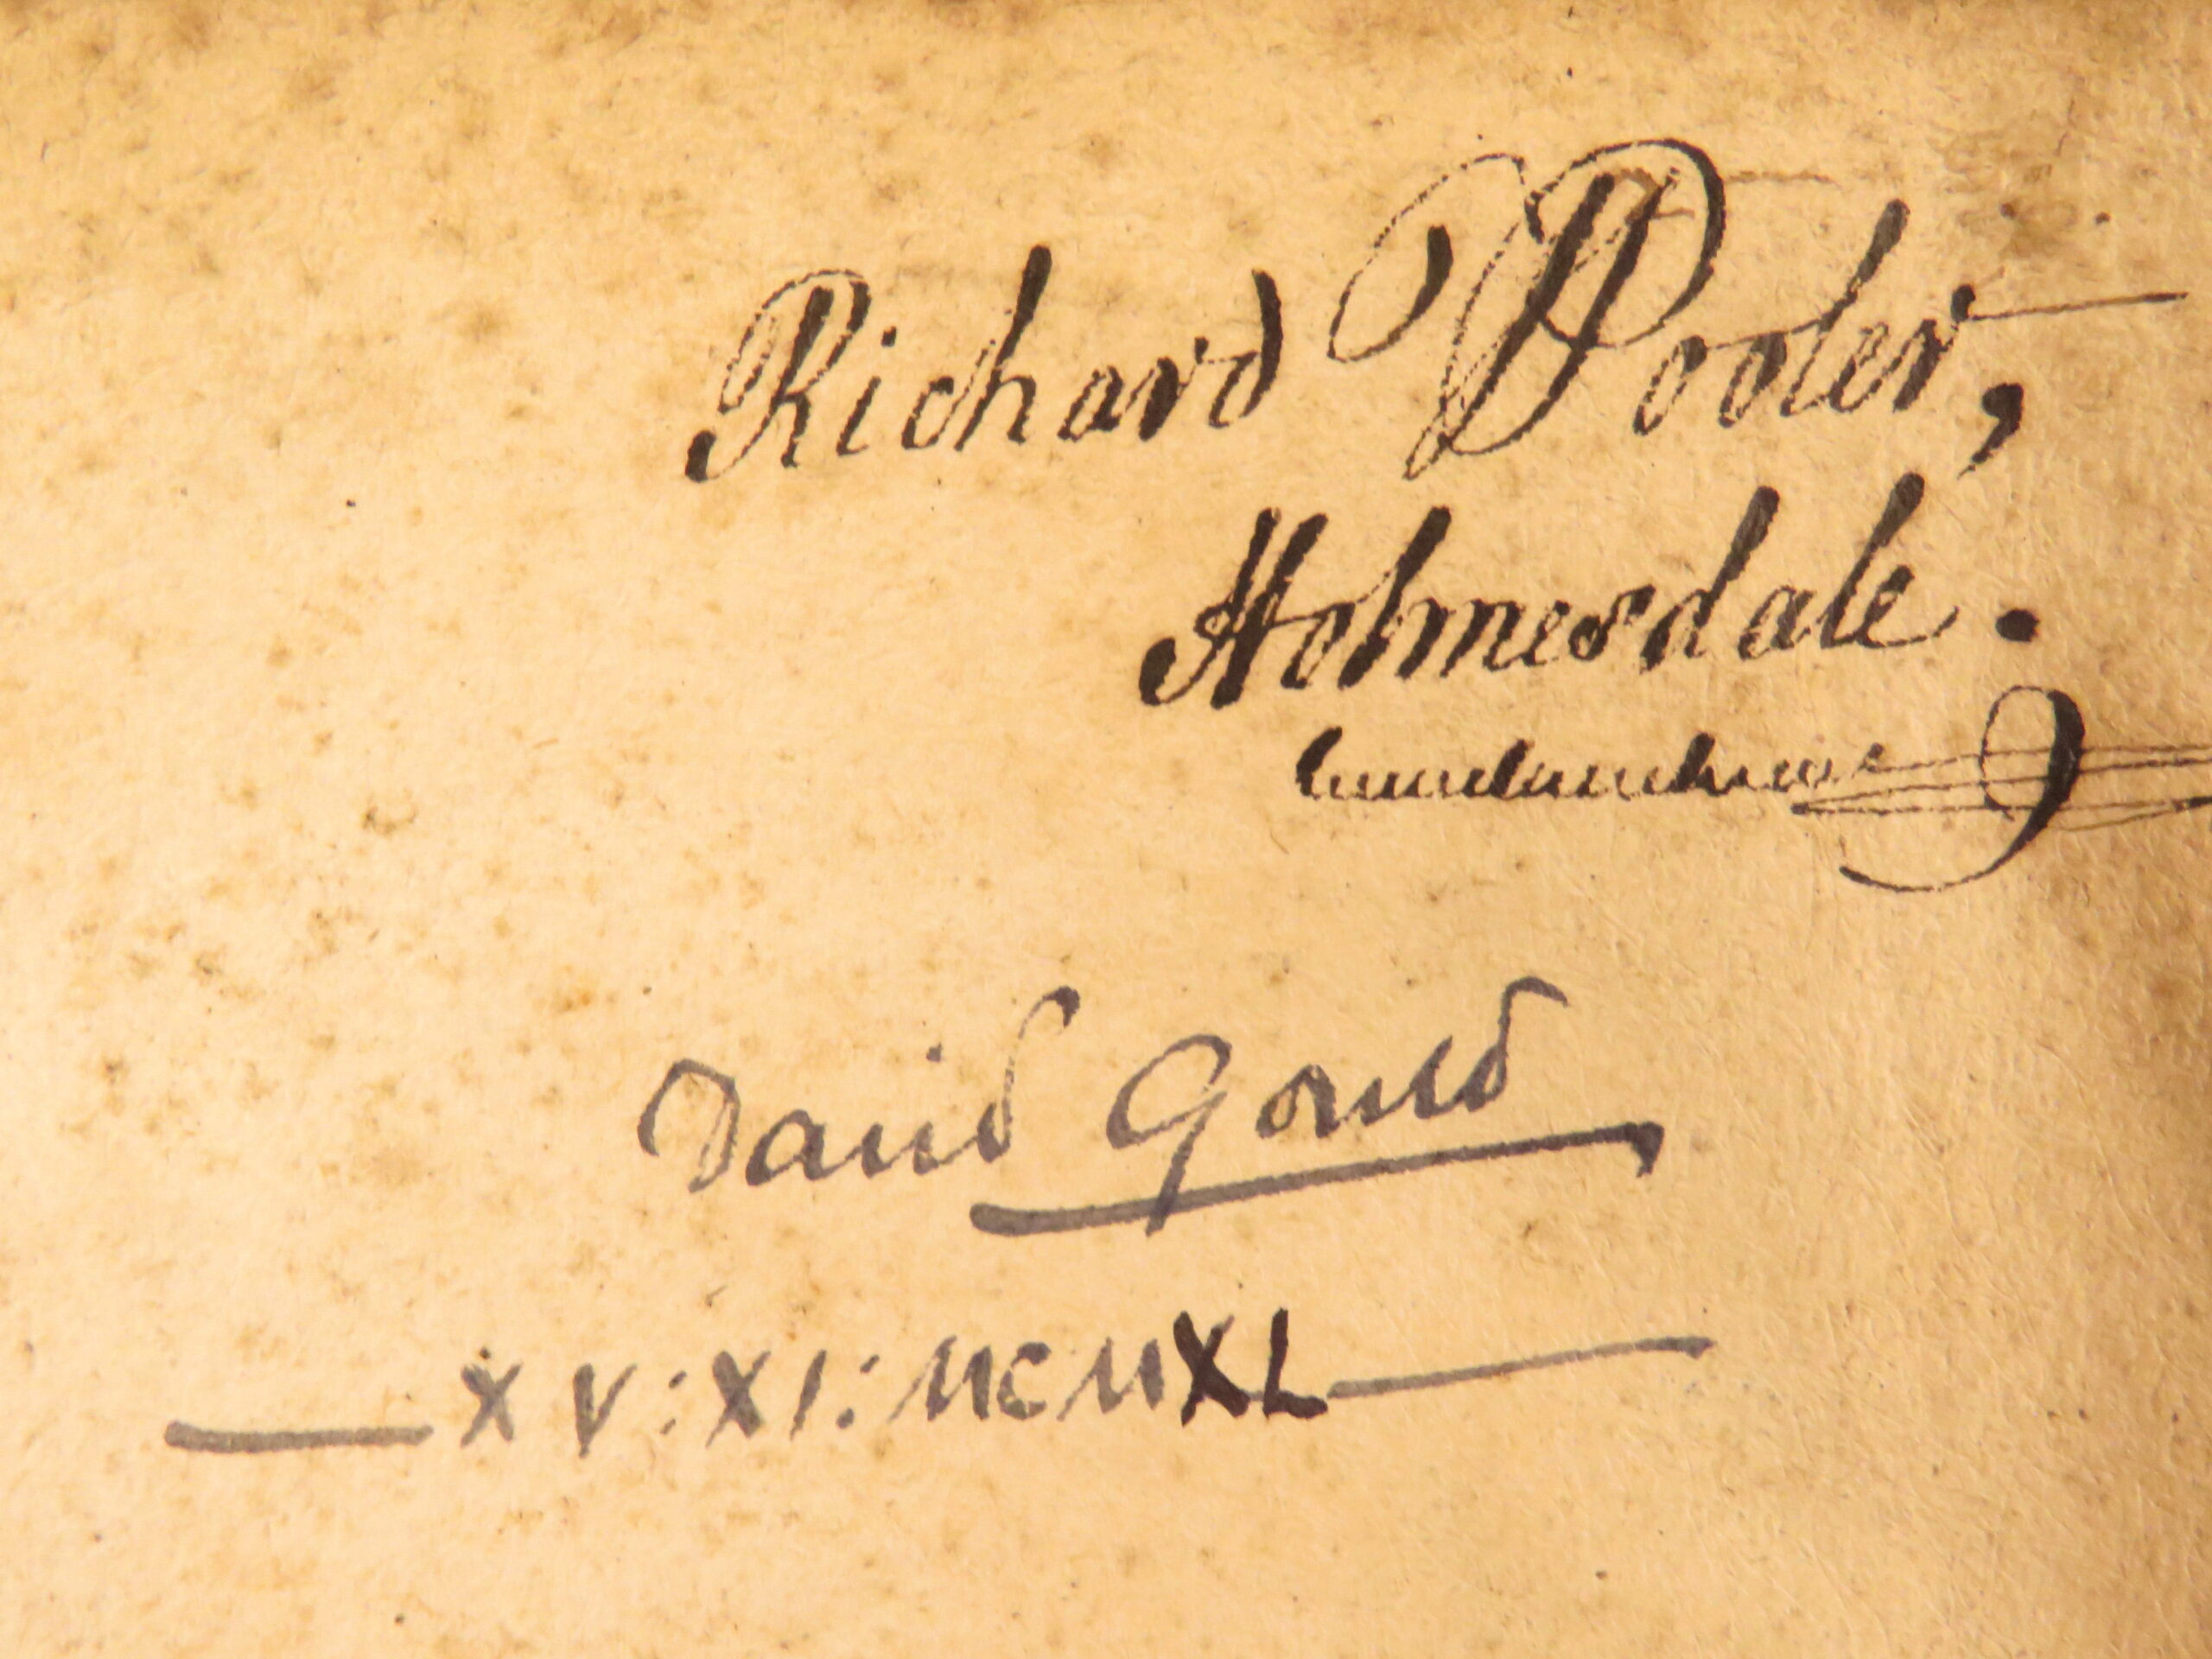 Richard Pooler,
Holmesdale.
David Gould
XV:XI:MCMXL